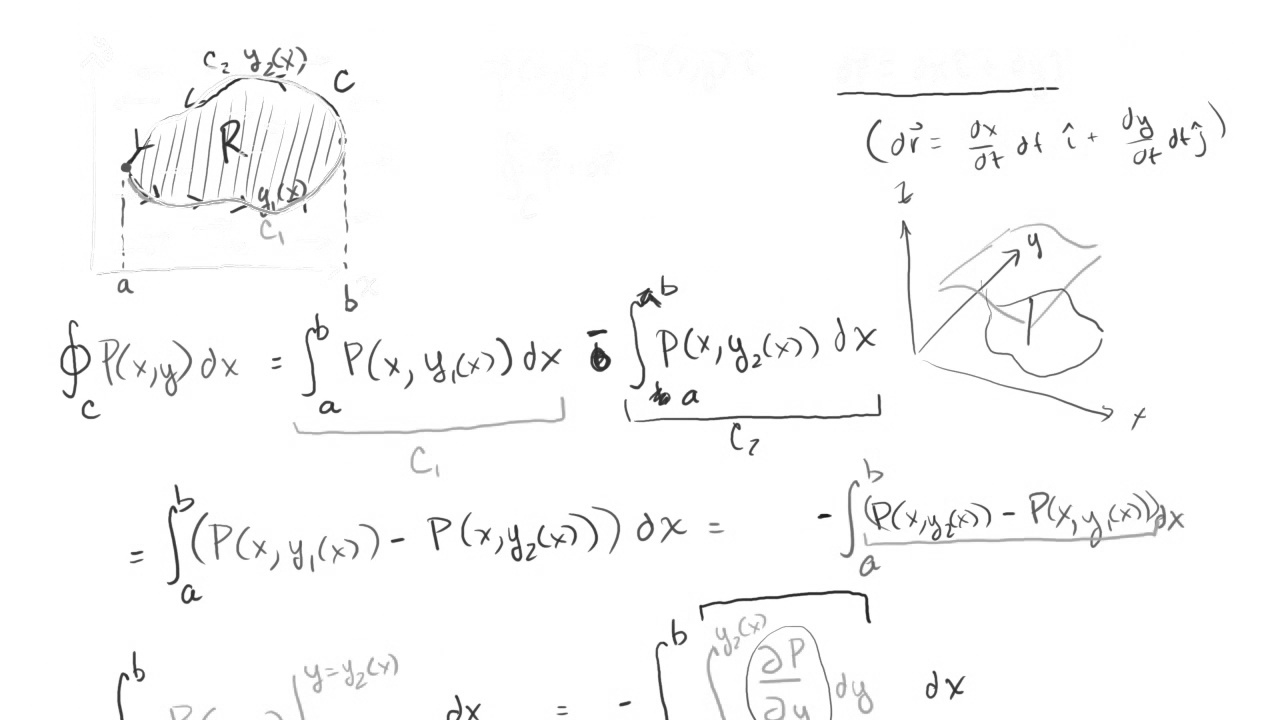 C₂ y₂(x) C
R
y₁(x)
C₁
a
b
(dr⃗ = dx/dt dt î + dy/dt dt ĵ)
z
y
x
∮_C P(x,y) dx = ∫_a^b P(x, y₁(x)) dx - ∫_a^b P(x, y₂(x)) dx
C₁ C₂
= ∫_a^b (P(x, y₁(x)) - P(x, y₂(x))) dx = - ∫_a^b (P(x, y₂(x)) - P(x, y₁(x))) dx
∫^b | y=y₂(x) dx = - ∫^b ∫^{y₂(x)} ∂P/∂y dy dx